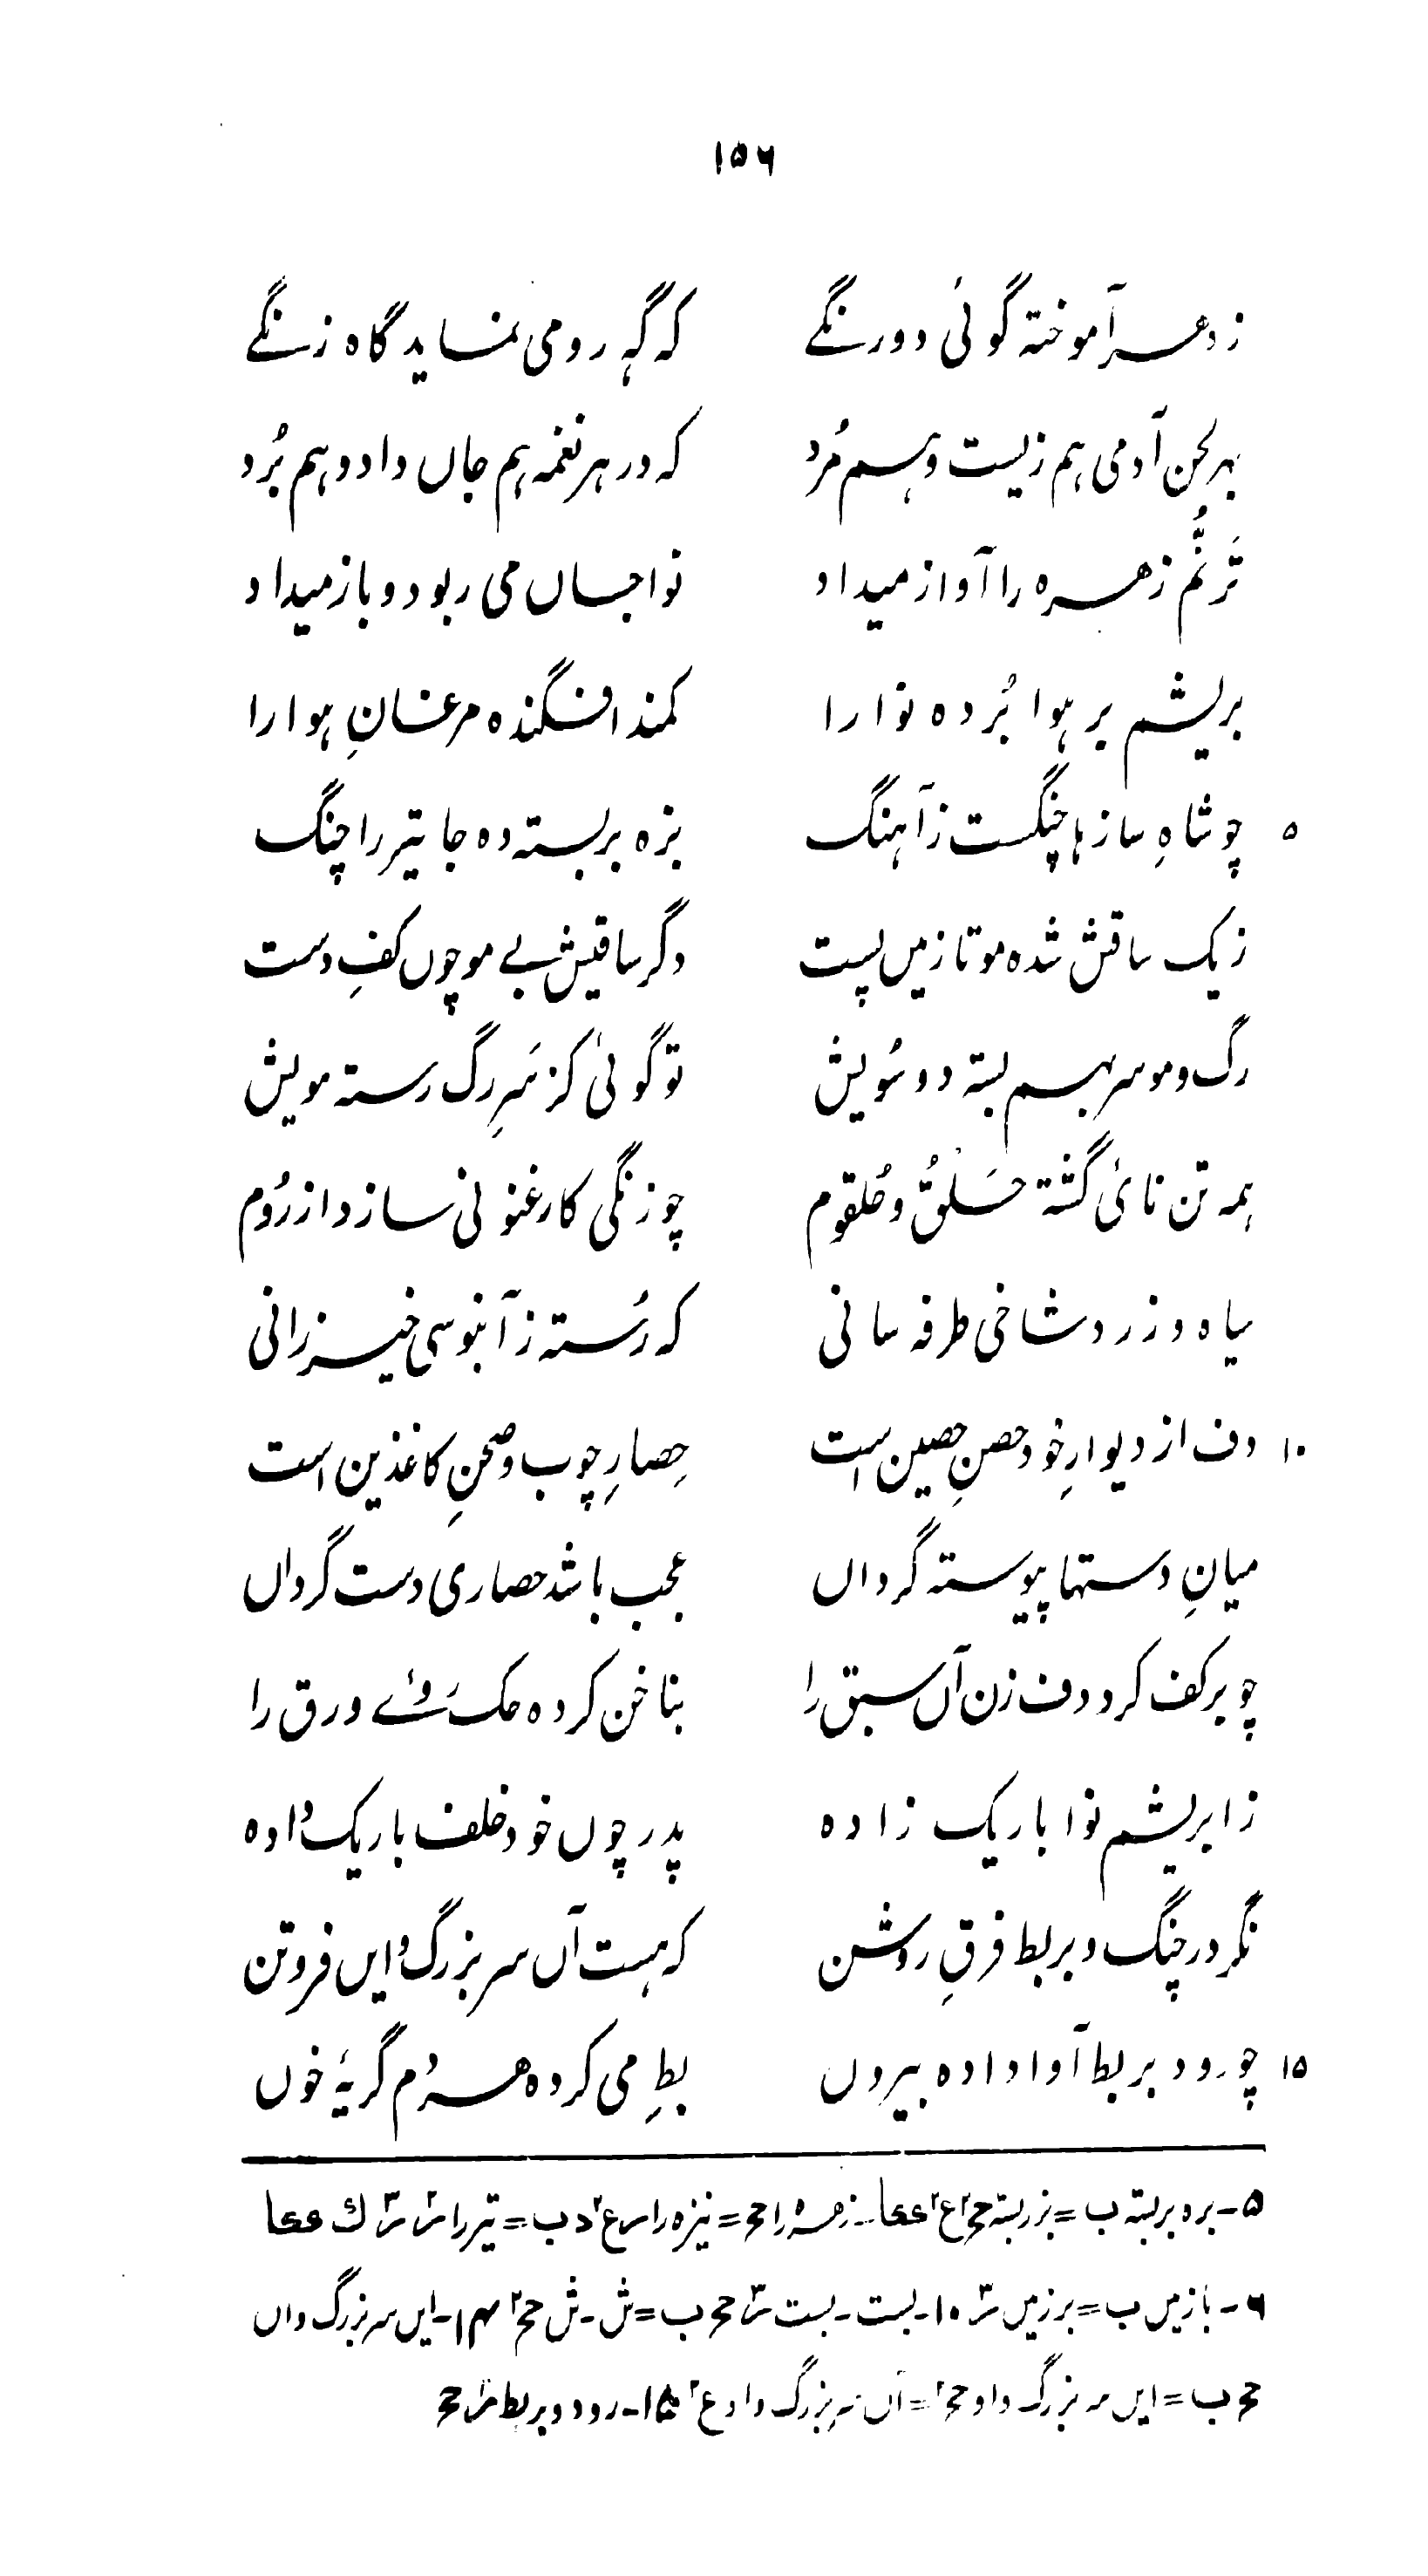 ۱۵۶
ز دهر آموخته گوئی دو رنگے که گہ رومی نماید گاه زنگے
بہر لحن آدمی ہم زیست و ہم مُرد که در ہر نغمه ہم جاں داد و ہم بُرد
تَرنُّم زہره را آواز میداد نوا جاں می ربود و باز میداد
بریشم بر ہوا بُرده نوا را کمند افگنده مرغانِ ہوا را
۵ چو شاهِ سازہا چنگست ز آہنگ بزه بر بسته ده جا تیر را چنگ
ز یک ساقش شده مو تا زمیں پست دگر ساقیش بے مو چوں کفِ دست
رگ و مو سر بہم بسته دو سُویش تو گوئی کز سَرِ رگ رسته مویش
ہمه تن نائ گشته حَلقُ و حُلقوم چو زنگی کارغنونی سازد از رُوم
سیاه و زرد شاخی طرفه سانی که رُسته ز آبنوسی خیزرانی
۱۰ دف از دیوارِ خود حصنِ حصین است حِصارِ چوب و صحنِ کاغذین است
میانِ دستها پیوسته گرداں عجب باشد حصاری دست گرداں
چو بر کف کرد دف زن آں سبق را بناخن کرده حک رُوئے ورق را
ز ابریشم نوا باریک زاده پدر چوں خود خلف باریک داده
نگر در چنگ و بربط فرقِ روشن که ہست آں سر بزرگ و ایں فروتن
۱۵ چو رود بربط آوا داده بیروں بطِ می کرده هر دم گریۂ خوں
۵- بره بربسته ب = بزر بسته
۶- با زمیں ب = بر زمیں ۱۰- بست - بست ایں سر بزرگ داں
ح ب = ایں سر بزرگ داو = آں سر بزرگ دا و ع ۱۵- رود و بربط